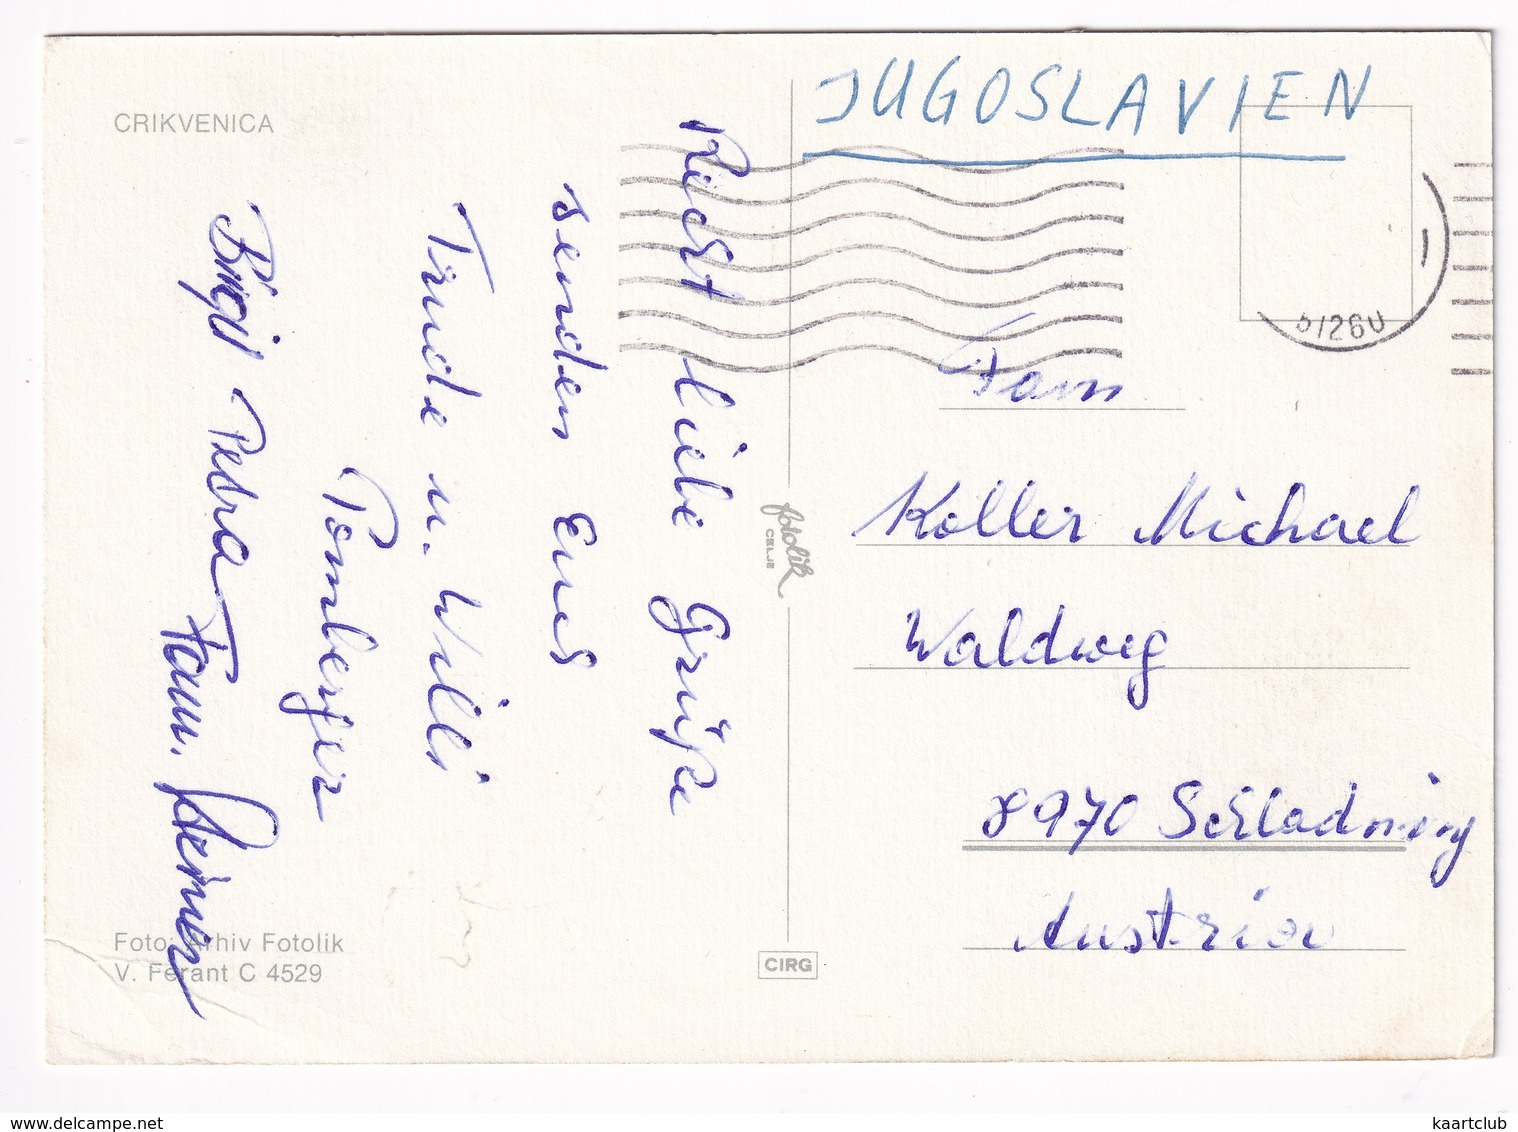 CRIKVENICA
JUGOSLAVIEN
51260
Recht liebe Grüße
senden Euch
Trude u. Willi
Pomberger
Birgit Petra
Fam.
Fam
Koller Michael
Waldweg
8970 Schladming
Austria
fotolik
CELJE
CIRG
Foto: Arhiv Fotolik
V. Ferant C 4529
kaartclub
delcampe.net